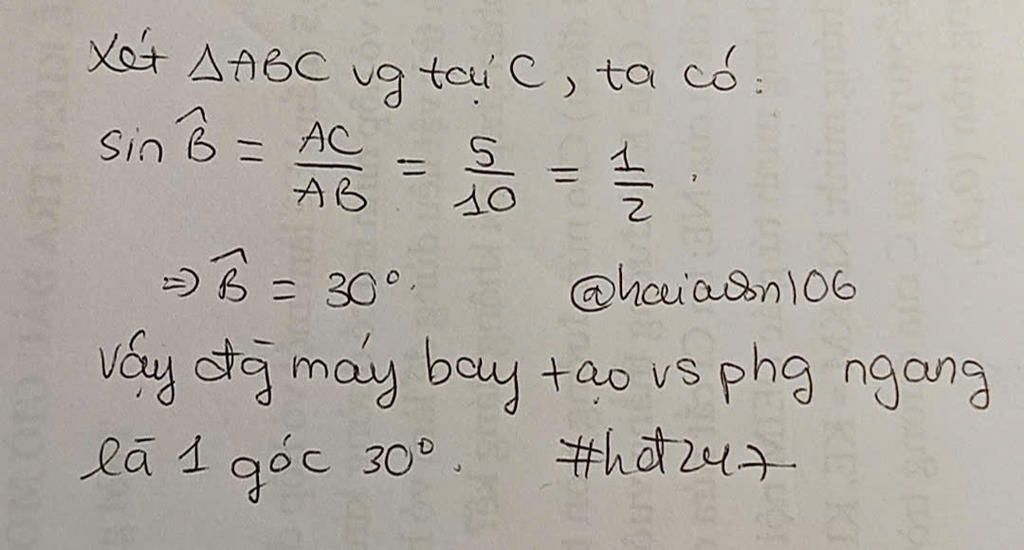 Xét ΔABC vg tại C, ta có:
sin B̂ = AC/AB = 5/10 = 1/2.
⇒ B̂ = 30°.
@haiaosn106
Vậy đg máy bay tạo vs phg ngang
là 1 góc 30°.
#hđ247